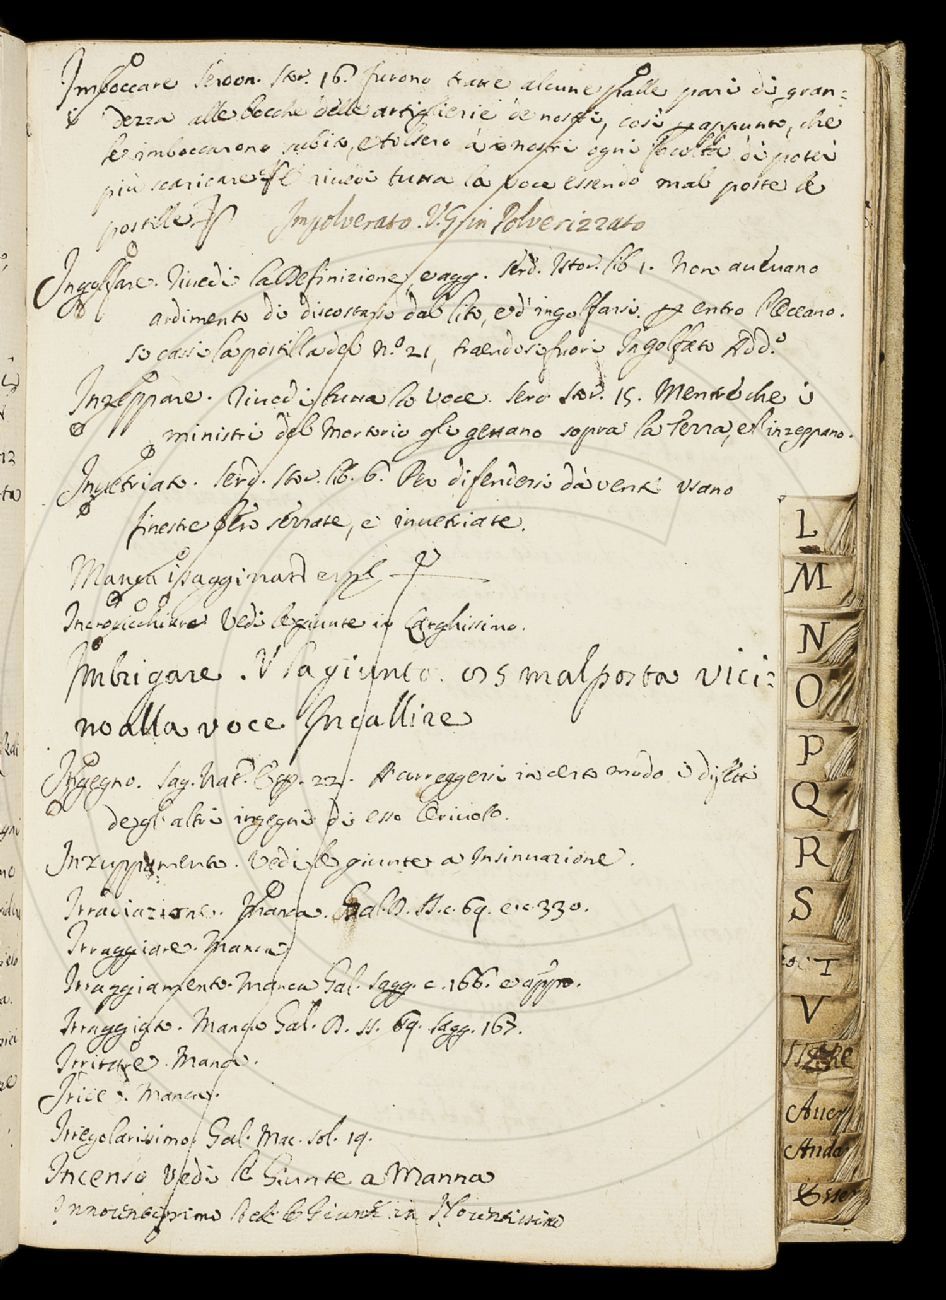 Imboccare Serdon. Stor. 16. furono tratte alcune palle pari di gran:
dezza alle bocche delle artiglierie de nostri, così p appunto, che
le imboccarono subito, e tolsero à i nostri ogni facoltà di poter
più scaricare e riuedi tutta la voce essendo mal poste le
postille Impolverato. V.G. in Polverizzato
Ingolfare. Riuedi la Definizione, e agg. Serd. Istor. lib 1. Non aueuano
ardimento di discostarsi dal lito, e d'ingolfarsi p entro l'Oceano.
Si cassi la postilla del N.º 21, traendosi fuori Ingolfato Add.º
Inzeppare. Riuedi tutta la voce. Serd Stor. 15. Mentre che i
ministri del Mortorio gli gettano sopra la Terra, e l'inzeppano.
Inuetriato. Serd. Stor. lib. 6. Per difendersi dà venti usano
finestre serrate, e inuetriate.
Manca
Incrocicchiare Vedi le giunte in Larghissimo.
Imbrigare. V la giunta. 025 mal posta vici:
no alla voce Incallire
Ingegno. Sag. Nat. Esp. 22. correggersi in certo modo i difetti
degl'altri ingegni di esso
Inzuppamento. Vedi le giunte a Insinuazione.
Irradiazione. Manca. Gal. S. c. 69. e c. 330.
Irraggiare. Manca
Irraggiamento. Manca Gal. Sagg. c. 166. e appo.
Irraggiato. Manca Gal. 69. Sagg. 167.
Irritare. Manca.
Irice. Manca.
Irregolarissimo. Gal. Mac. Sol. 19.
Incenso Vedi le Giunte a Manna
Innocentissimo Ved. le Giunte in Nocentissimo
L
M
N
O
P
Q
R
S
T
V
Auer
Anda
Esser